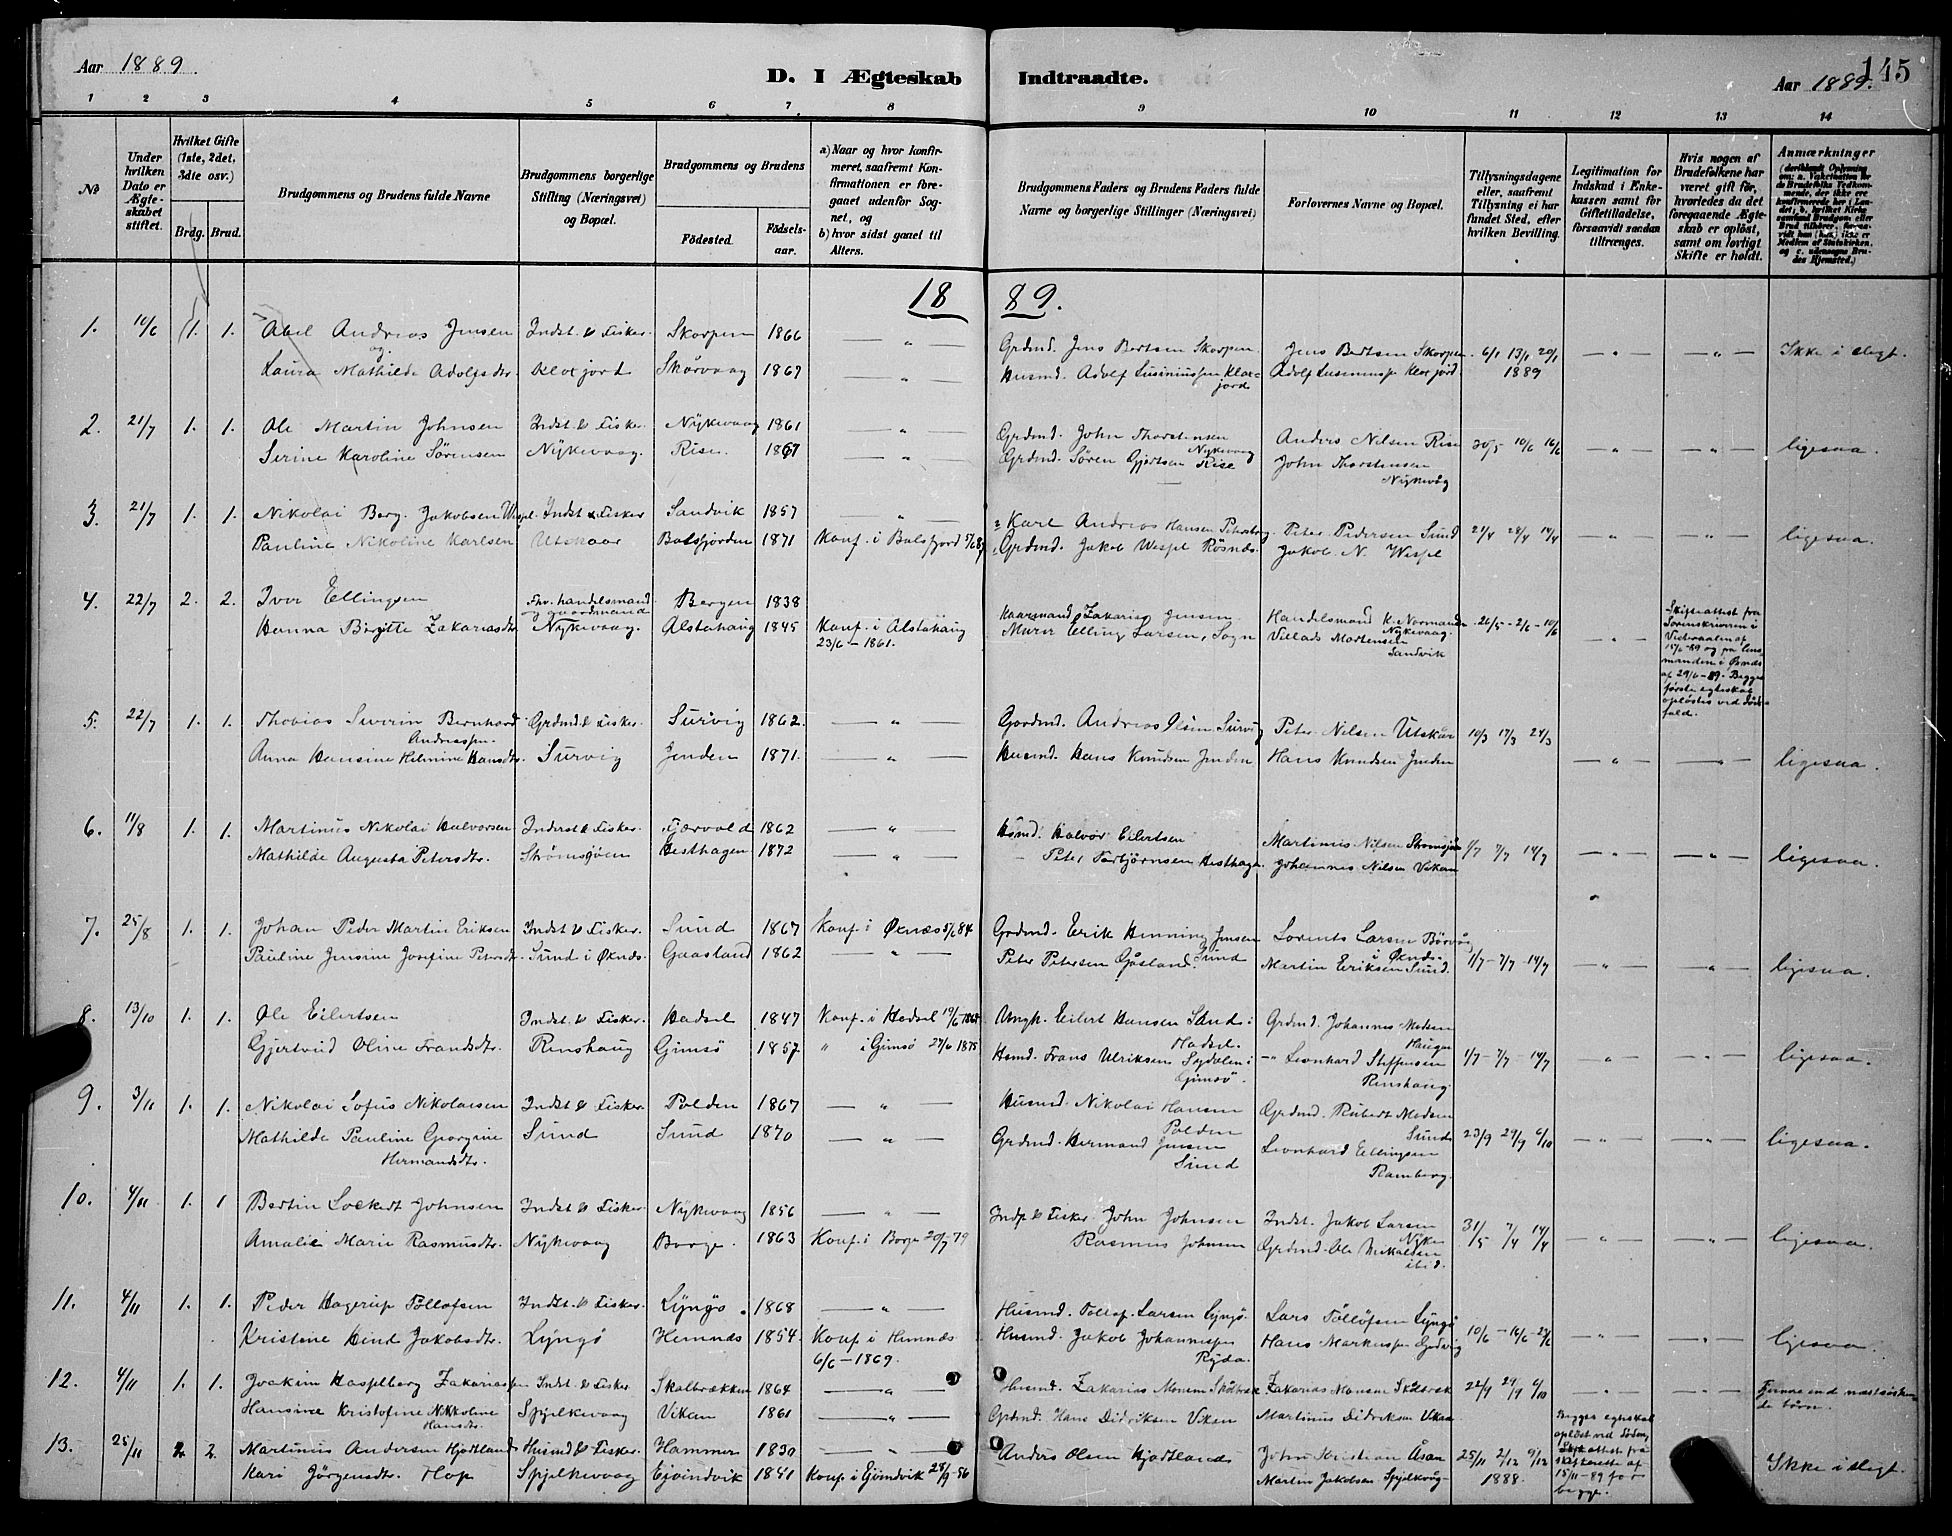 Aar 1889.
D. I Ægteskab Indtraadte.
Aar 1889.
145
1 2 3 4 5 6 7. 8 9 10 11 12 13 14
No
Under hvilken Dato er Ægteskabet stiftet.
Hvilket Gifte (1ste, 2det, 3die osv.)
Brdg. Brud.
Brudgommens og Brudens fulde Navne
Brudgommens borgerlige Stilling (Næringsvei) og Bopæl.
Brudgommens og Brudens
Födested. Födselsaar.
a) Naar og hvor konfirmeret, saafremt Konfirmationen er foregaaet udenfor Sognet, og
b) hvor sidst gaaet til Alters.
Brudgommens Faders og Brudens Faders fulde Navne og borgerlige Stillinger (Næringsvei)
Forlovernes Navne og Bopæl.
Tillysningsdagene eller, saafremt Tillysning ei har fundet Sted, efter hvilken Bevilling.
Legitimation for Indskud i Enkekassen samt for Giftetilladelse, forsaavidt saadan tiltrænges.
Hvis nogen af Brudefolkene har været gift før, hvorledes da det foregaaende Ægteskab er oplöst, samt om lovligt Skifte er holdt.
Anmærkninger
18 89.
1. 1. 1. Abel Andreas Jensen Indst. & Fisker. Skorpen 1866 — " — Grdmd. Jens Bertsen Skorpen. Jens Bertsen Skorpen. 6/1 13/1 20/1 — " — — " — Ikke i slegt.
og
Laura Mathilde Adolfsdtr. Kloxjord Skårvaag 1867 — " — Husmd. Adolf Lusiniussen Kloxjord Adolf Kloxjord. 1889
2. 21/7 1. 1. Ole Martin Johnsen Indst. & Fisker. Nykevaag 1861 — " — Grdmd. John Thorstensen Nykevaag Anders Nilsen Rise 30/5 10/6 16/6 — " — — " — ligesaa.
Serine Karoline Sörensen Nykevaag. Rise. 1867 — " — Grdmd. Søren Gjertsen Rise John Thorstensen Nykvåg
3. 21/7 1. 1. Nikolai Berg Jakobsen Indst & Fisker Sandvik 1857 — " — Karl Andreas Hansen Peter Pedersen Sund 21/4 28/4 14/4 — " — — " — ligesaa.
Pauline Nikoline Karlsen Utskaar Balsfjorden 1871 Konf. i Balsfjord Grdmd. Jakob Wespel Røsnes. Jakob N. Wespel
4. 22/7 2. 2. Iver Ellingsen Fhv. handelsmand og gaardmand Bergen 1838 Zakarias Jensen Handelsmand K. Normann Nykevaag. 26/5 - 2/6 - 10/6 — " —
Hanna Birgitte Zakariasdtr Nykevaag. Alstahaug 1845 Konf. i Alstahaug 23/6 – 1861. Murer Elling Larsen, Sogn Villads Mortensen Sandvik
Skifteattest fra Sorenskriveren i Vesteraalen af 15/6-89 og fra lensmanden i af 29/6-89. Begges første egteskab opløstes ved dödsfald.
5. 22/7 1. 1. Thobias Severin Bernhard Andreassen Grdmd. & Fisker. Survig 1862. — " — Gardmd. Andreas Olsen Survig Peter Nilsen Utskår 10/3 17/3 24/3
Anna Hansine Helmine Hansdtr. Survig Jenden 1871. — " — Husmd. Hans Knudsen Jenden Hans Knudsen Jenden — " — — " — ligesaa.
6. 11/8 1. 1. Martinus Nikolai Halvorsen Inderst & Fisker. Fjærvold 1862 — " — Hsmd. Halvor Eilertsen Martinus Nilsen Strömsjöen 1/7 7/7 14/7 — " — — " — ligesaa.
Mathilde Augusta Petersdtr. Strömsjöen Hesthagen 1872 — " — — Peter Torbjörnsen Hesthagen Johannes Nilsen Viken
7. 25/8 1. 1. Johan Peder Martin Eriksen Indst. & Fisker. Sund 1867 Konf. i Øxnæs 5/6 84 Grdmd. Erik Henning Jensen Sund Lorents Larsen Börvåg i Øxnes.
Pauline Jensine Josefine Petersdtr. Sund i Øxnæs. Gaasland 1862 — " — Peter Petersen Gåsland. Martin Eriksen Sund. 1/7 - 7/7 - 14/7 — " — — " — ligesaa.
8. 13/10 1. 1. Ole Eilertsen Indst. & Fisker. Hadsel 1847 Konf. i Hadsel Ungk. Eilert Hansen Sand i Hadsel. Grdmd. Johannes Madsen Haugen
Gjertrud Oline Frandsdtr. Renshaug Gimsö 1857 " i Gimsö 27/6 1875 Hsmd. Frans Ulriksen Sydalen i Gimsö. –" Leonhard Steffensen Renshaug. 1/7 - 7/7 - 14/7 — " — — " — ligesaa.
9. 3/11 1. 1. Nikolai Sofus Nikolaisen Indst. & Fisker. Polden 1867 — " — Husmd. Nikolai Hansen Polden Grdmd. Robert Madsen Sund
Mathilde Pauline Georgine Hermandsdtr. Sund Sund 1870 — " — Grdmd. Hermand Jensen Sund Leonhard Ellingsen Ramberg. 23/9 29/9 6/10 — " — — " — ligesaa.
10. 4/11 1. 1 Bertin Lockert Johnsen Indst. & Fisker Nykevaag 1856 — " — Indst & Fisker John Johnsen Indst. Jakob Larsen Nyke 31/5 7/4 14/4
Amalie Marie Rasmusdtr. Nykvaag Borge. 1863 Konf. i Borge 20/7 79 Rasmus Johnsen Grdmd. Ole Mikalsen ibid. — " — — " — ligesaa.
11. 4/11 1. 1. Peder Hagerup Tollofsen Indst. & Fisker. Lyngö. 1868 — " — Husmd. Tollof Larsen Lyngö. Lars Tollofsen Lyngö
Kristine Hind Jakobsdtr. Lyngö Hemnæs 1854. Konf. i Hemnæs 6/6 – 1869. Husmd. Jakob Johannessen Ryda. Hans Markussen 10/6 - 16/6 - 23/6 — " — — " — ligesaa.
12. 4/11 1. 1. Joakim Hasselberg Zakariassen Indst. & Fisker Skalbrækken 1864 — " — Husmd. Zakarias Monsen Skålbrek Zakarias Monsen Skålbrek 22/9 29/9 6/10 " "
Hansine Kristofine Nikoline Hansdtr. Spjelkevaag Viken 1861 — " — Grdmd. Hans Didriksen Viken Martinus Didriksen Viken
13. 25/11 2. 2. Martinus Andersen Hjortland Husmd & Fisker. Hammer 1830 — " — Anders Olsen Hjortland John Kristian Åsan 25/11 2/12 9/12
Kari Jörgensdtr. Hop Spjelkevaag Ejvindvik 1841 Konf. i Ejvindvik 28/9-56 Martin Jakobsen Spjelkvåg 1888. Ikke i slegt.
Begges egteskab oplöst ved döden, Skifteattest fra skifterette af 15/11-89 for begge.